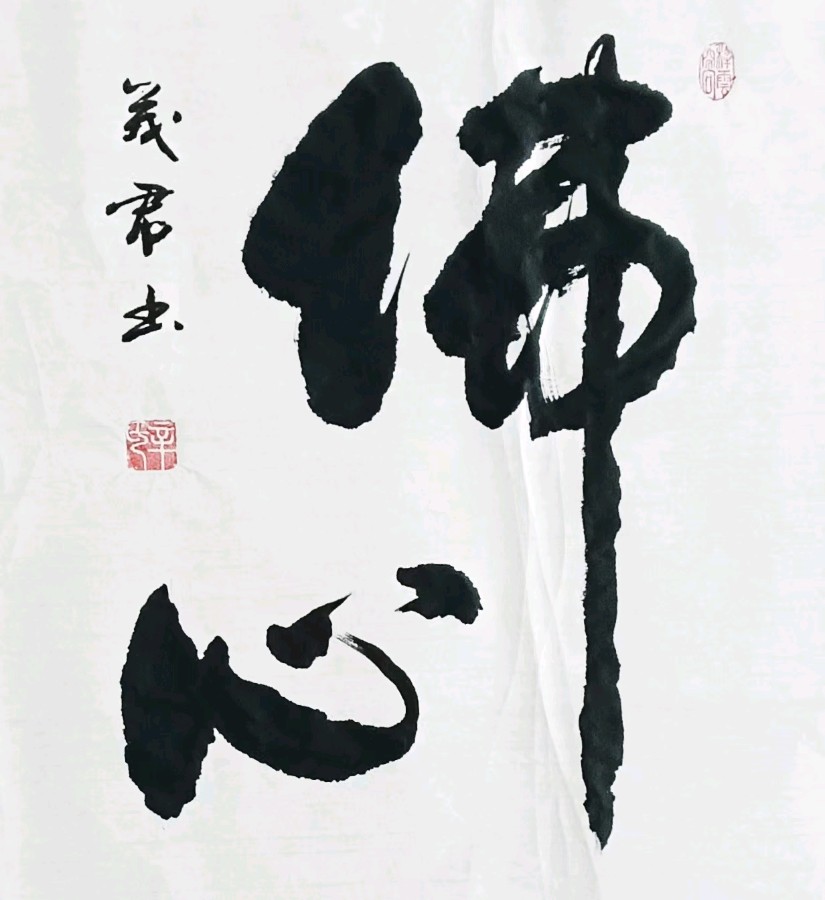 佛心
義君书